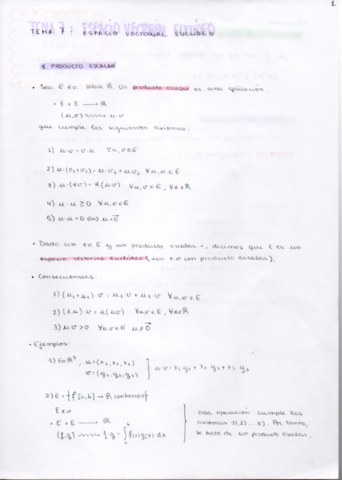 1
TEMA 7: ESPACIO VECTORIAL EUCLÍDEO
1 PRODUCTO ESCALAR
• Sea E e.v. sobre R. Un producto escalar es una aplicación.
• E × E → R
(u,v) → u·v
que cumple los siguientes axiomas.
1) u·v = v·u ∀u,v∈E
2) u·(v₁+v₂) = u·v₁ + u·v₂ ∀u,v∈E
3) u·(αv) = α(u·v) ∀u,v∈E, ∀α∈R
4) u·u ≥ 0 ∀u,v∈E
5) u·u = 0 ⟺ u = 0⃗
• Dado un e.v. E y un producto escalar •, decimos que E es un
espacio vectorial euclídeo (un e.v. un producto escalar).
• Consecuencias:
1) (u₁+u₂)·v = u₁·v + u₂·v ∀u,v∈E
2) (αu)·v = α(uv) ∀u,v∈E, ∀α∈R
3) u·v > 0 ∀u,v∈E u≠0⃗
• Ejemplos:
1) E=R³, u=(x₁,x₂,x₃)
v=(y₁,y₂,y₃) ] u·v = x₁y₁ + x₂y₂ + x₃y₃
2) E = {f [a,b] → R continuas}
E e.v.
• E × E → R
(f,g) → f·g = ∫ₐᵇ f(x)g(x) dx
Esta operación cumple los
axiomas 1), 2)... 5). Por tanto,
se trata de un producto escalar.